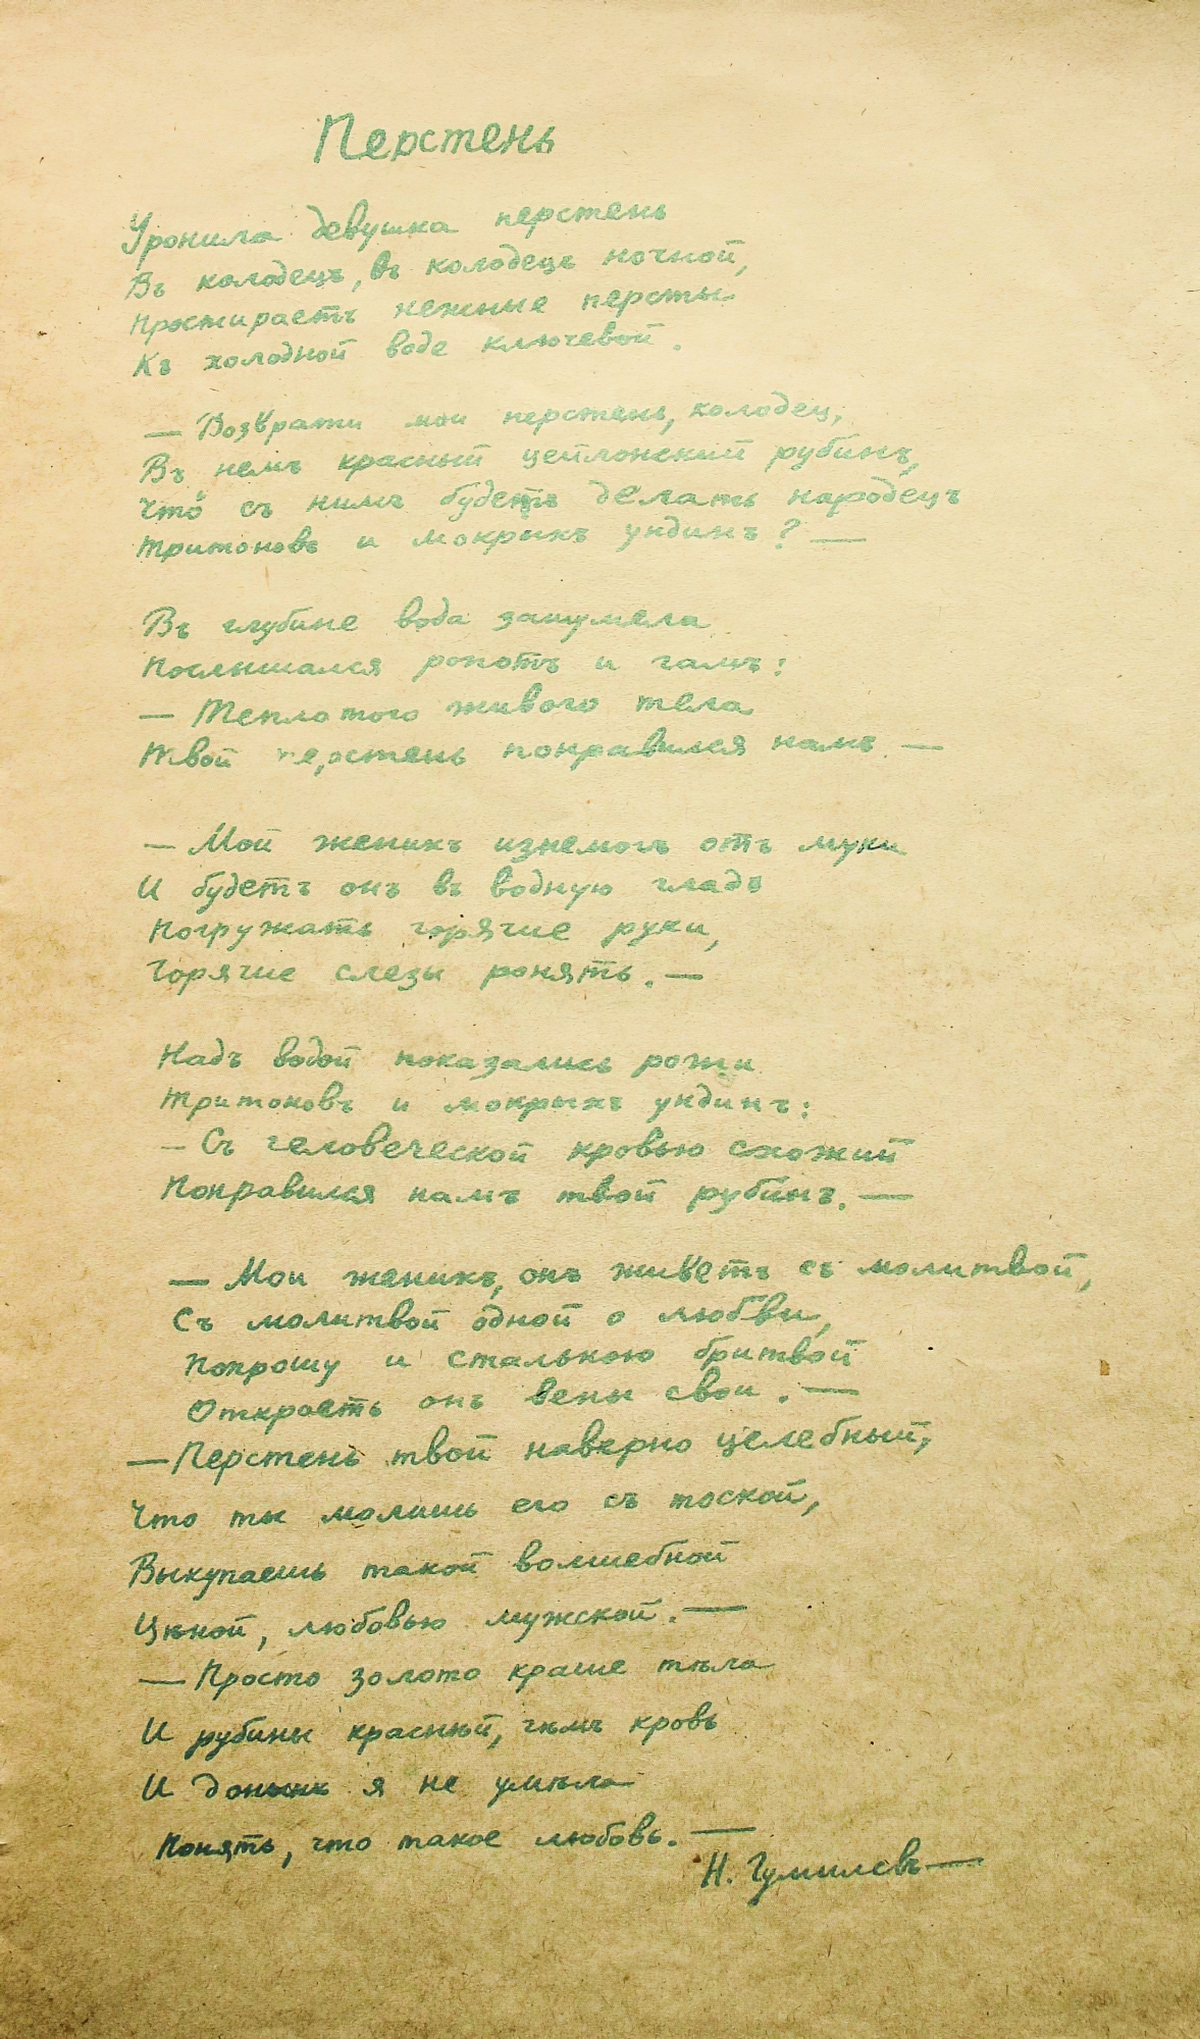 Перстень
Уронила девушка перстень
Въ колодецъ, въ колодецъ ночной,
Простираетъ нежные персты
Къ холодной воде ключевой.
— Возврати мои перстень, колодец,
Въ немъ красный цейлонский рубинъ,
Что съ нимъ будетъ делать народецъ
Тритоновъ и мокрыхъ ундинъ? —
Въ глубине вода зашумела
Послышался ропотъ и гамъ:
— Теплотого живого тела
Твой перстень понравился намъ. —
— Мой женихъ изнемогъ отъ муки
И будетъ онъ въ водную гладь
Погружать горячие руки,
Горячие слезы ронять. —
Надъ водой показались рожи
Тритоновъ и мокрыхъ ундинъ:
— Съ человеческой кровью схожий
Понравился намъ твой рубинъ. —
— Мои женихъ, онъ живетъ съ молитвой,
Съ молитвой одной о любви,
Попрошу и стальною бритвой
Откроетъ онъ вены свои. —
— Перстень твой наверно целебный,
Что ты молишь его съ тоской,
Выкупаешь такой волшебной
Цѣной, любовью мужской. —
— Просто золото краше тѣла
И рубины краснѣй, чѣмъ кровь
И донынѣ я не умѣла
Понять, что такое любовь. —
Н. Гумилевъ —